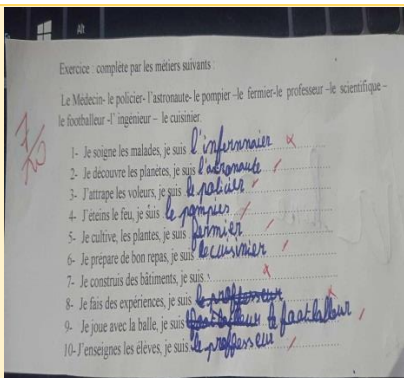 Alt
Exercice : complète par les métiers suivants
Le Médecin- le policier- l'astronaute- le pompier –le fermier-le professeur –le scientifique –
le footballeur -l' ingénieur – le cuisinier.
7/10
1- Je soigne les malades, je suis l'infermnaier x
2- Je découvre les planètes, je suis l'astronaute
3- J'attrape les voleurs, je suis le policier
4- J'éteins le feu, je suis le pompies
5- Je cultive, les plantes, je suis fermier
6- Je prépare de bon repas, je suis le cuisinier
7- Je construis des bâtiments, je suis x
8- Je fais des expériences, je suis le proffesseur x
9- Je joue avec la balle, je suis footballeur le faatballeur
10- J'enseignes les élèves, je suis le proffesseur